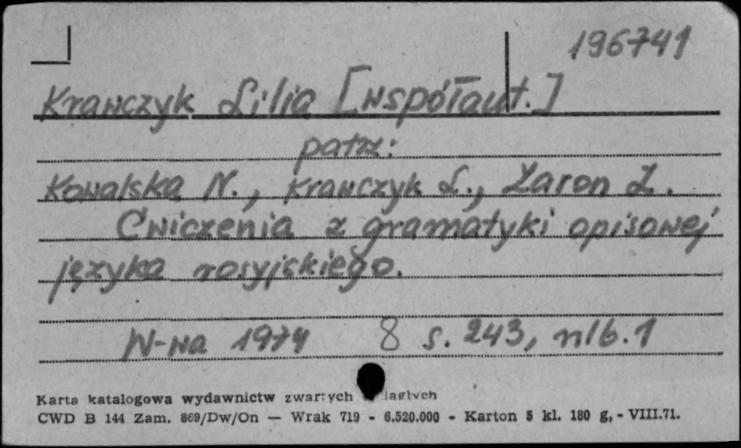 196741
Krawczyk Lilia [współaut.]
patrz:
Kowalska N., Krawczyk L., Zaron Z.
Ćwiczenia z gramatyki opisowej
języka rosyjskiego.
W-wa 1974 8 s. 243, nlb. 1
Karta katalogowa wydawnictw zwartych ciągłych
CWD B 144 Zam. 869/Dw/On — Wrak 719 - 6.520.000 - Karton 5 kl. 180 g, - VIII.71.